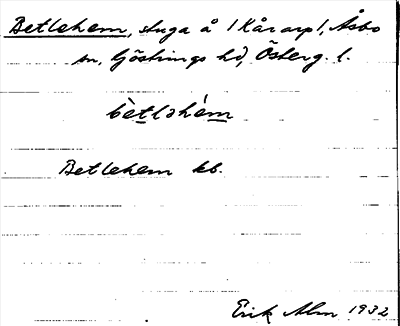 Betlehem, stuga å /Kårarp/, Åsbo
sn, Göstrings hd, Österg. l.
bètləhém
Betlehem kb.
Erik Alm 1932